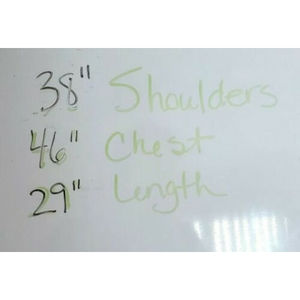 38" Shoulders
46" Chest
29" Length